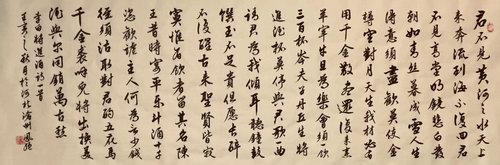 君不見黃河之水天上
來奔流到海不復回君
不見高堂明鏡悲白髮
朝如青絲暮成雪人生
得意須盡歡莫使金
樽空對月天生我材必有
用千金散盡還復來烹
羊宰牛且為樂會須一飲
三百杯岑夫子丹丘生將
進酒杯莫停與君歌一曲
請君為我傾耳聽鐘鼓
饌玉不足貴但願長醉
不復醒古來聖賢皆寂
寞惟有飲者留其名陳
王昔時宴平樂斗酒十千
恣歡謔主人何為言少錢
徑須沽取對君酌五花馬
千金裘呼兒將出換美
酒與爾同銷萬古愁
李白將進酒詩一首
之秋月於河北滄州